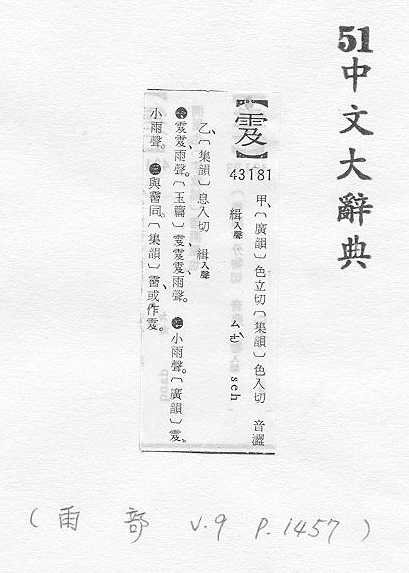 51中文大辭典
【雭】
43181
甲、〔廣韻〕色立切〔集韻〕色入切 音澀
緝入聲 ㄙㄜˋ seh
乙、〔集韻〕息入切 緝入聲
㊀雭雭、雨聲。〔玉篇〕雭雭、雨聲。㊁小雨聲。〔廣韻〕雭、
小雨聲。㊂與霫同。〔集韻〕霫、或作雭。
(雨 部 V.9 P.1457)